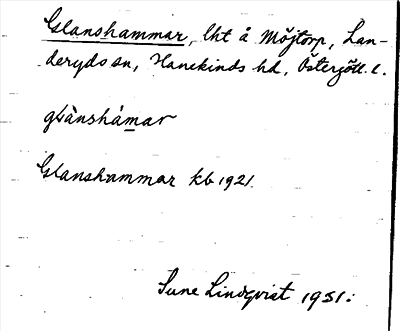 Glanshammar, lht å Möjtorp, Lan-
deryds sn, Hanekinds hd, Östergötl. l.
glànshámar
Glanshammar kb 1921.
Sune Lindqvist 1951.